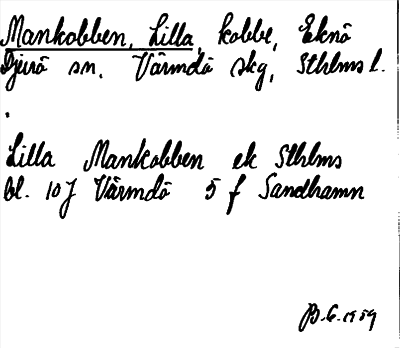 Mankobben, Lilla, kobbe, Eknö
Djurö sn, Värmdö skg, Sthlms l.
.
Lilla Mankobben ek Sthlms
bl. 10J Värmdö 5 f Sandhamn
B.G. 1959